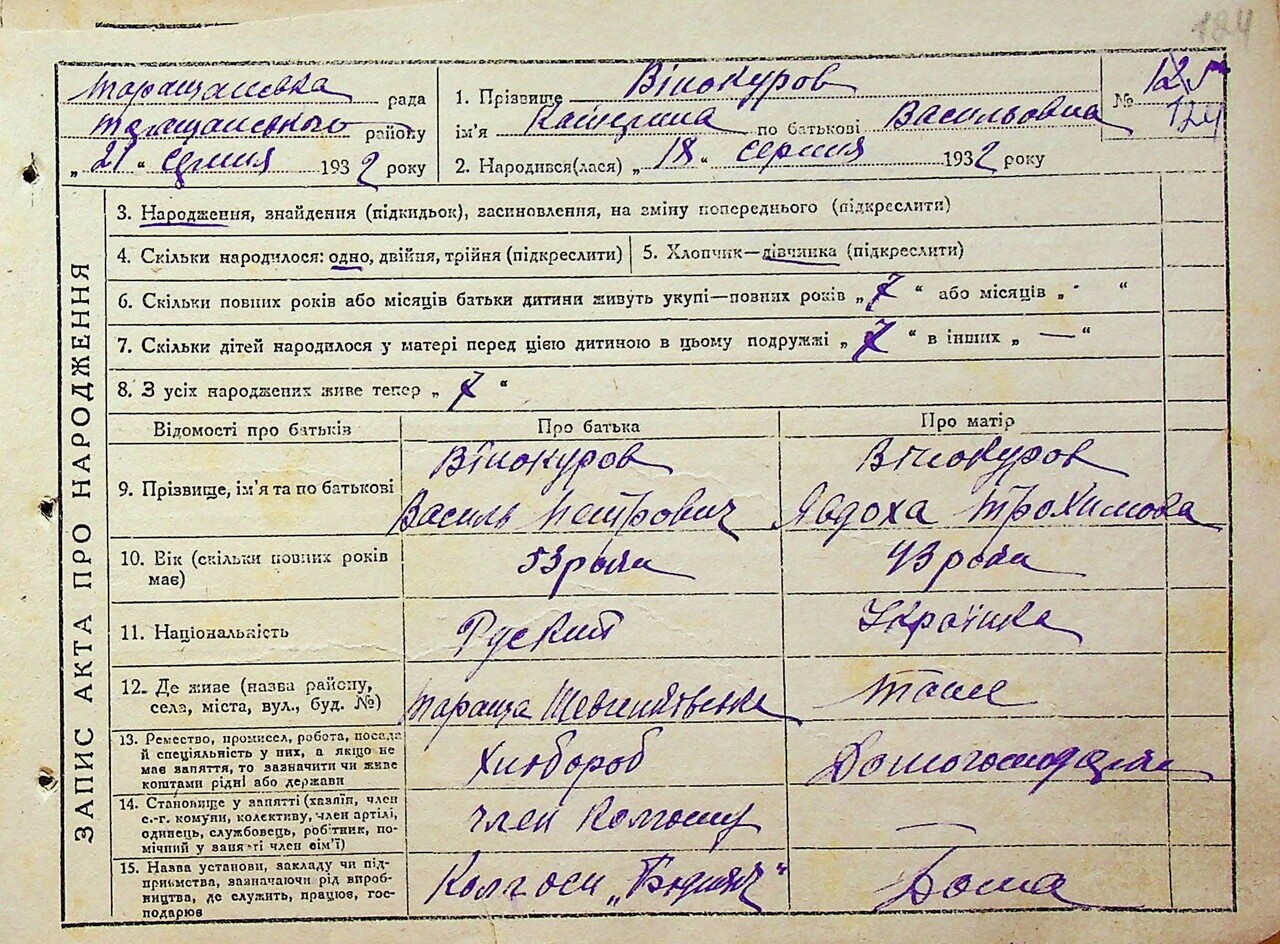 184
Таращанська рада
Таращанського району
„21" серпня 1932 року
1. Прізвище Вінокуров
ім'я Катерина по батькові Васильовна
2. Народився(лася) „18" серпня 1932 року
№ 125
124
ЗАПИС АКТА ПРО НАРОДЖЕННЯ
3. Народження, знайдення (підкидьок), засиновлення, на зміну попереднього (підкреслити)
4. Скільки народилося: одно, двійня, трійня (підкреслити)
5. Хлопчик—дівчинка (підкреслити)
6. Скільки повних років або місяців батьки дитини живуть укупі—повних років „7" або місяців „-"
7. Скільки дітей народилося у матері перед цією дитиною в цьому подружжі „7" в інших „—"
8. З усіх народжених живе тепер „7"
Відомості про батьків
Про батька
Про матір
9. Прізвище, ім'я та по батькові
Вінокуров
Василь Петрович
Вінокуров
Явдоха Трохимовна
10. Вік (скільки повних років
має)
53 роки
43 роки
11. Національність
Руский
Українка
12. Де живе (назва району,
села, міста, вул., буд. №)
Тараща Шевченківська
таме
13. Ремество, промисел, робота, посада
й спеціяльність у них, а якщо не
має заняття, то зазначити чи живе
коштами рідні або держави
Хлібороб
Домогосподарка
14. Становище у занятті (хазяїн, член
с.-г. комуни, колективу, член артілі,
одинець, службовець, робітник, по-
мічний у занятті член сім'ї)
член Колгоспу
—
15. Назва установи, закладу чи під-
приємства, зазначаючи рід вироб-
ництва, де служить, працює, гос-
подарює
Колгосп
Дома